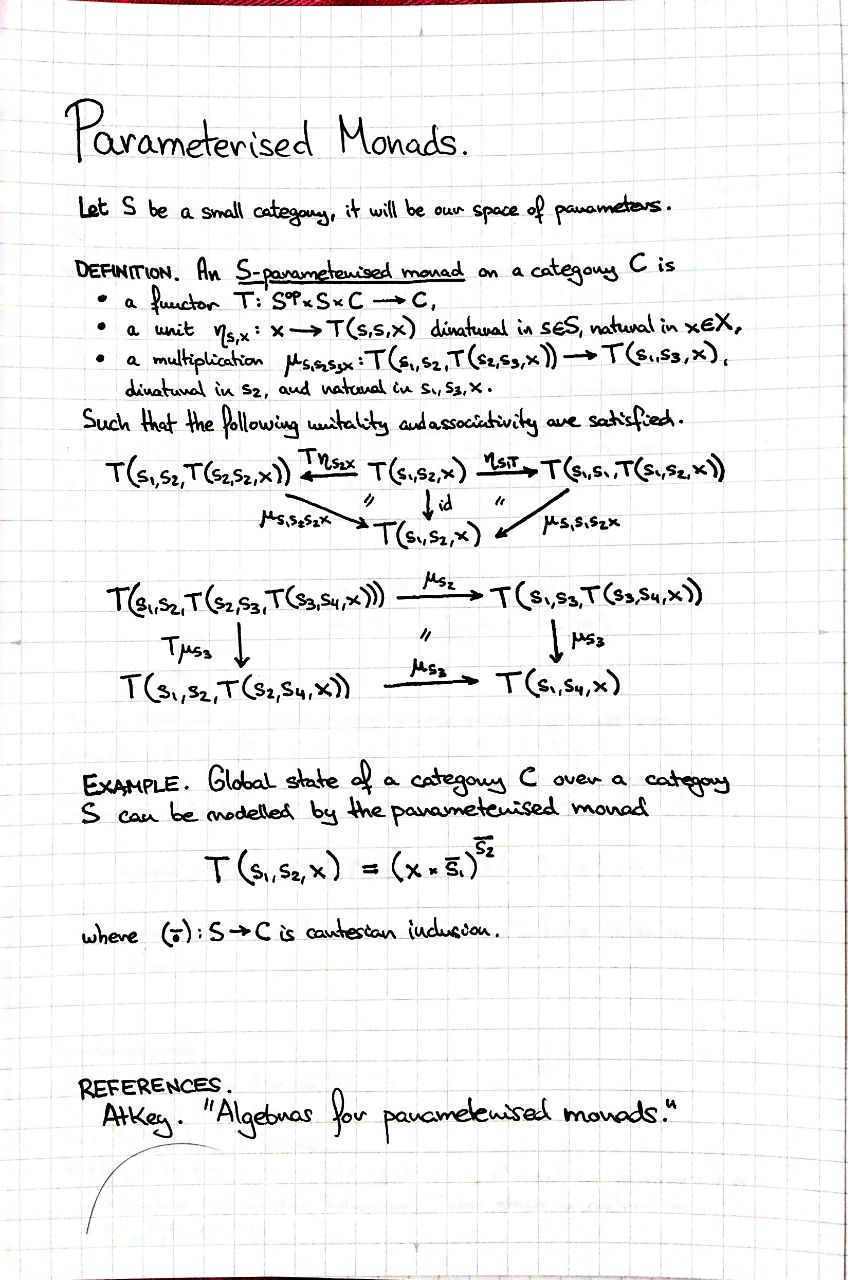 Parameterised Monads.
Let S be a small category, it will be our space of parameters.
DEFINITION. An S-parameterised monad on a category C is
• a functor T: Sᵒᵖ×S×C → C,
• a unit η_{s,x}: x → T(s,s,x) dinatural in s∈S, natural in x∈X,
• a multiplication μ_{s₁s₂s₃x}: T(s₁,s₂,T(s₂,s₃,x)) → T(s₁,s₃,x),
dinatural in s₂, and natural in s₁,s₃,x.
Such that the following unitality and associativity are satisfied.
T(s₁,s₂,T(s₂,s₂,x)) ←Tη_{s₂x} T(s₁,s₂,x) η_{s₁T}→ T(s₁,s₁,T(s₁,s₂,x))
μ_{s₁s₂s₂x} ↘ " ↓ id " ↙ μ_{s₁s₁s₂x}
T(s₁,s₂,x)
T(s₁,s₂,T(s₂,s₃,T(s₃,s₄,x))) μ_{s₂}→ T(s₁,s₃,T(s₃,s₄,x))
Tμ_{s₃} ↓ " ↓ μ_{s₃}
T(s₁,s₂,T(s₂,s₄,x)) μ_{s₃}→ T(s₁,s₄,x)
EXAMPLE. Global state of a category C over a category
S can be modelled by the parameterised monad
T(s₁,s₂,x) = (x × s̄₁)^{s̄₂}
where (‾): S → C is cartesian inclusion.
REFERENCES.
Atkey. "Algebras for parameterised monads."